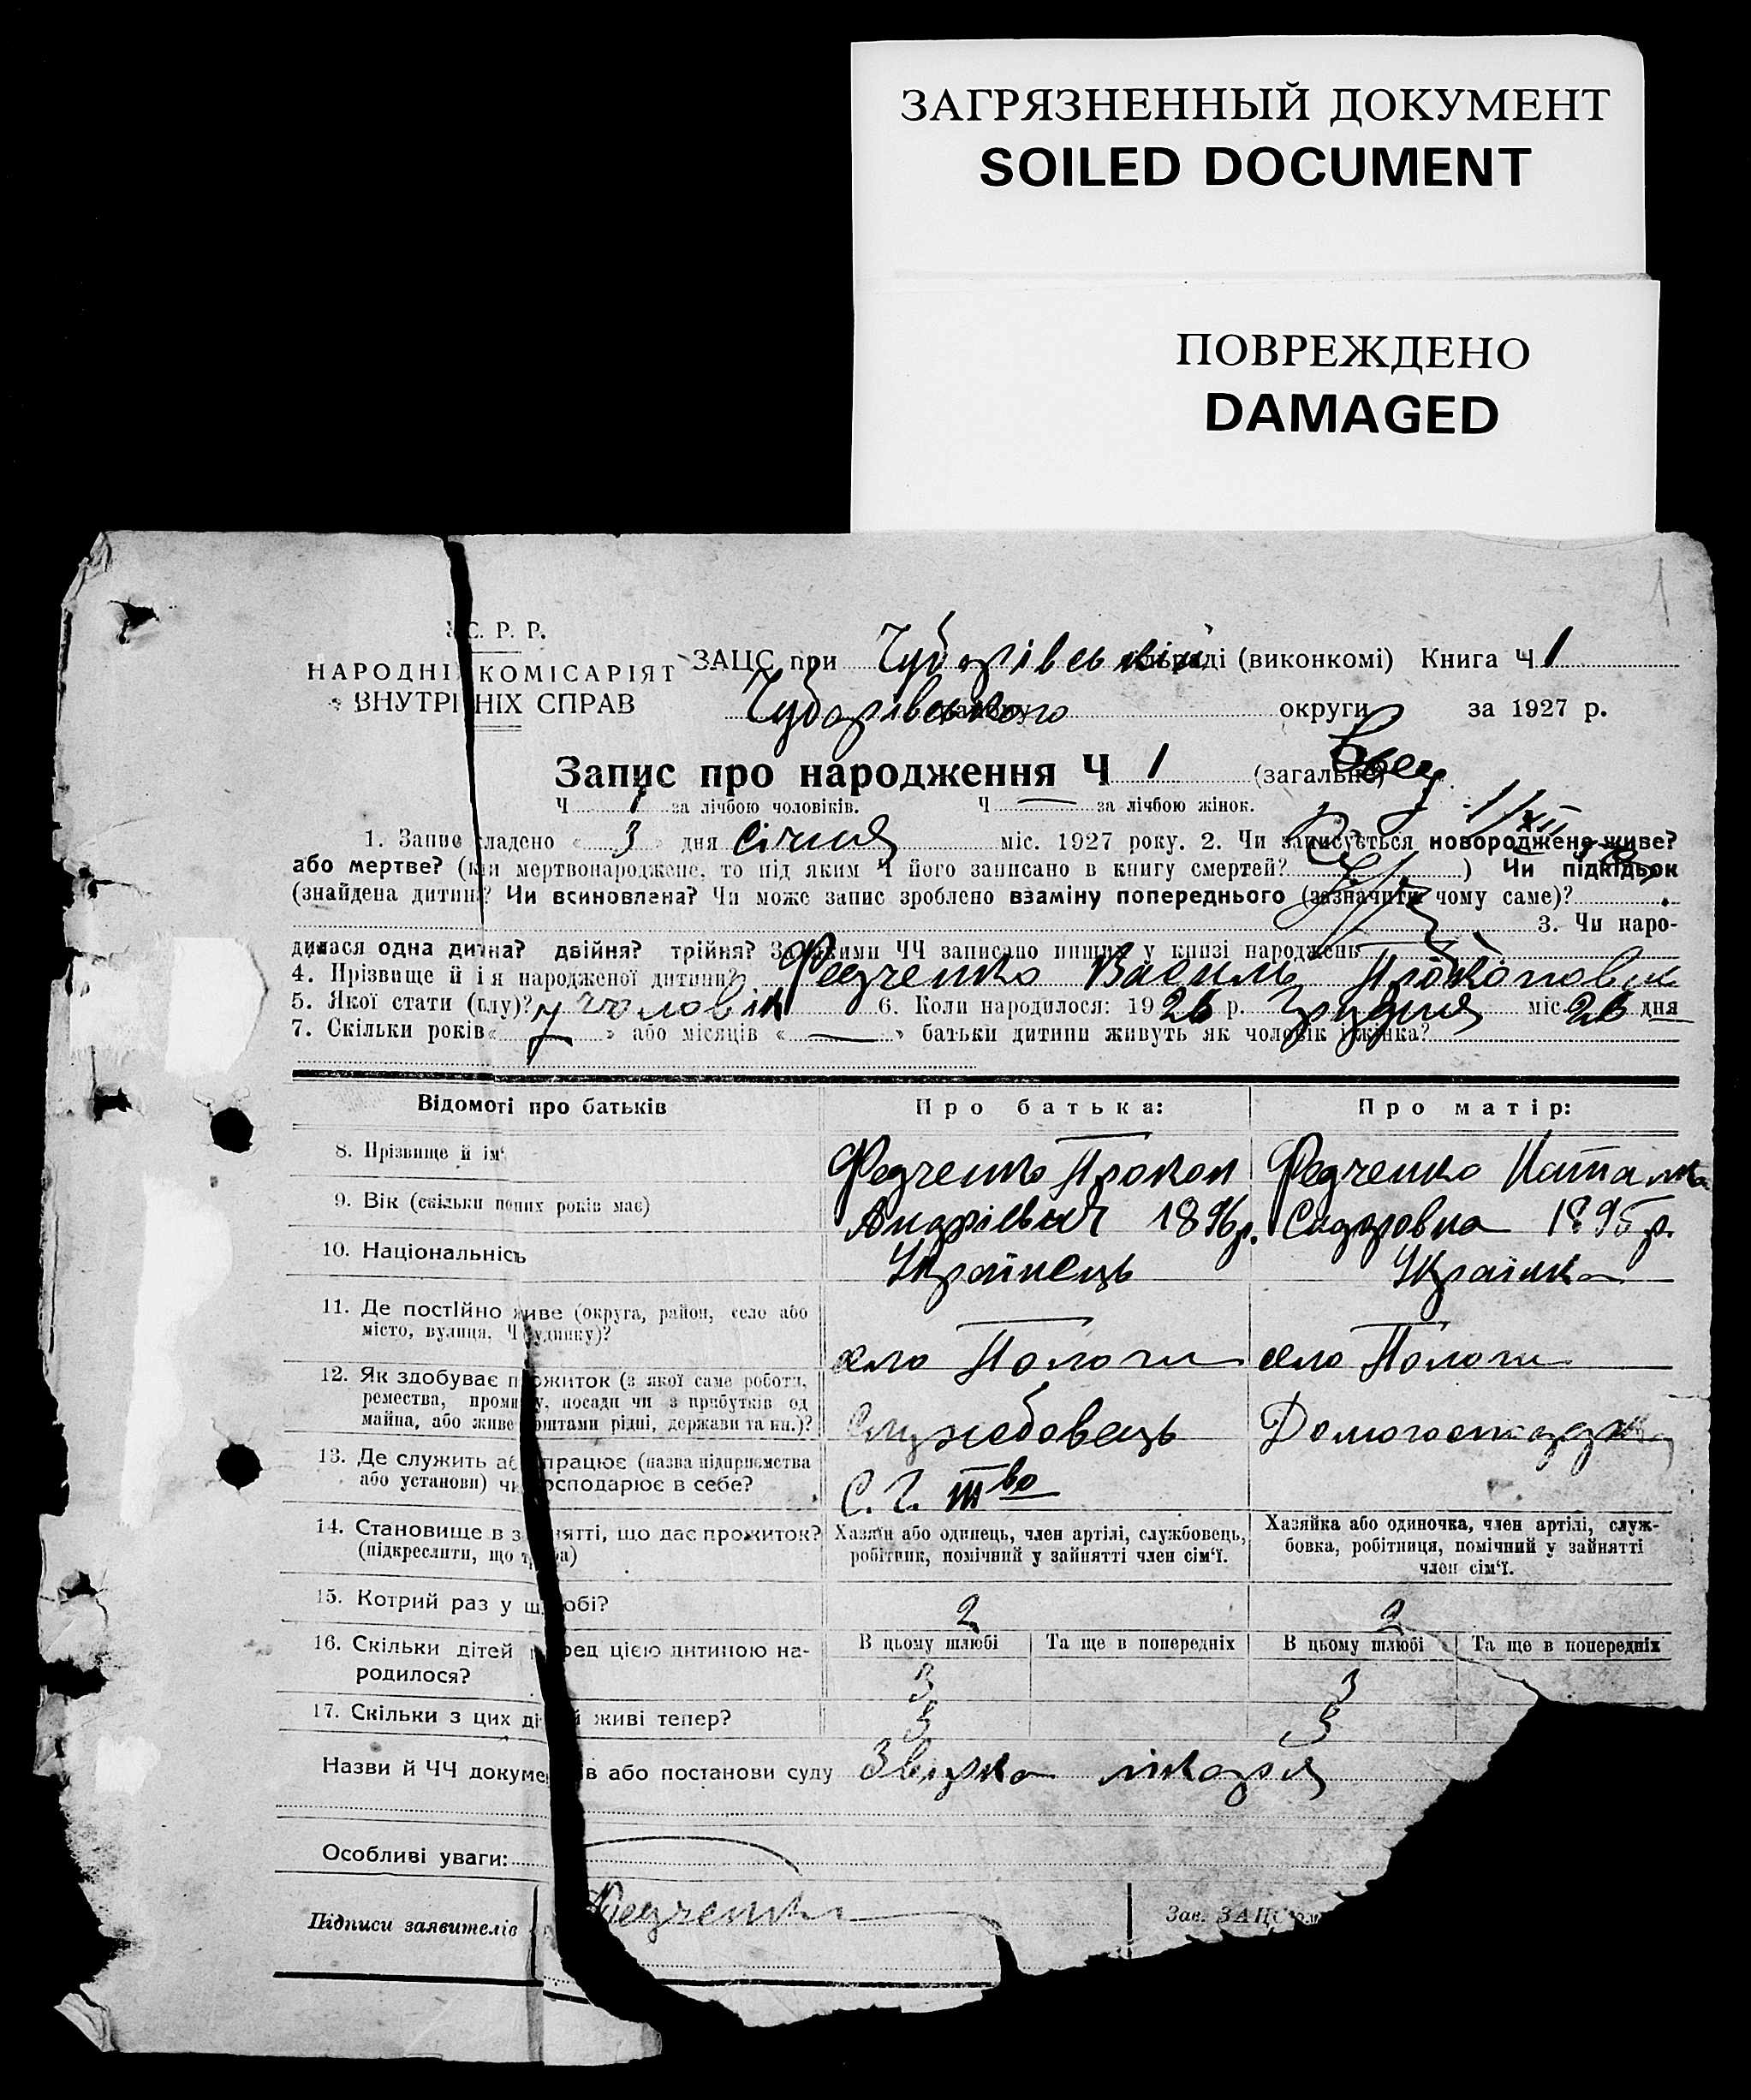 ЗАГРЯЗНЕННЫЙ ДОКУМЕНТ
SOILED DOCUMENT
ПОВРЕЖДЕНО
DAMAGED
1
С. Р. Р.
НАРОДНІ КОМІСАРІЯТ
ВНУТРІ НІХ СПРАВ
ЗАЦС при Чубарівській раді (виконкомі) Книга Ч 1
Чубарівського округи за 1927 р.
Запис про народження Ч 1 (загальне)
Ч 1 за лічбою чоловіків. Ч — за лічбою жінок.
1. Запис складено « 3 » дня січня міс. 1927 року. 2. Чи записується новороджене живе?
або мертве? (коли мертвонароджене, то під яким Ч його записано в книгу смертей? ) Чи підкідьок
(знайдена дитина? Чи всиновлена? Чи може запис зроблено взаміну попереднього (зазначити чому саме)?
3. Чи наро-
дилася одна дитина? двійня? трійня? За якими ЧЧ записано инших у книзі народжень
4. Прізвище й ім'я народженої дитини? Федченко Василь Прокопович
5. Якої стати (полу)? чоловік 6. Коли народилося: 1926 р. Грудня міс. 26 дня
7. Скільки років« — » або місяців « — » батьки дитини живуть як чоловік і жінка?
Відомості про батьків Про батька: Про матір:
8. Прізвище й ім' Федченко Прокоп Федченко Наталка
9. Вік (скільки повних років має) Андрієвич 1896р. Сидоровна 1895р.
10. Національність Українець Українка
11. Де постійно живе (округа, район, село або
місто, вулиця, Ч будинку)? село Пологи село Пологи
12. Як здобуває прожиток (з якої саме роботи,
ремества, промислу, посади чи з прибутків од
майна, або живе коштами рідні, держави та ин.)? Службовець Домогосподарка
13. Де служить або працює (назва підприємства
або установи) чи господарює в себе? С. Г. Тво
14. Становище в занятті, що дає прожиток?
(підкреслити, що треба)
Хазяїн або одинець, член артілі, службовець,
робітник, помічний у зайнятті член сім'ї.
Хазяйка або одиночка, член артілі, служ-
бовка, робітниця, помічний у зайнятті
член сім'ї.
15. Котрий раз у шлюбі? 2 2
16. Скільки дітей перед цією дитиною на-
родилося?
В цьому шлюбі Та ще в попередніх В цьому шлюбі Та ще в попередніх
3 3
17. Скільки з цих дітей живі тепер? 3 3
Назви й ЧЧ документів або постанови суду Звірка лікаря
Особливі уваги:
Підписи заявителів Федченко Зав. ЗАЦС